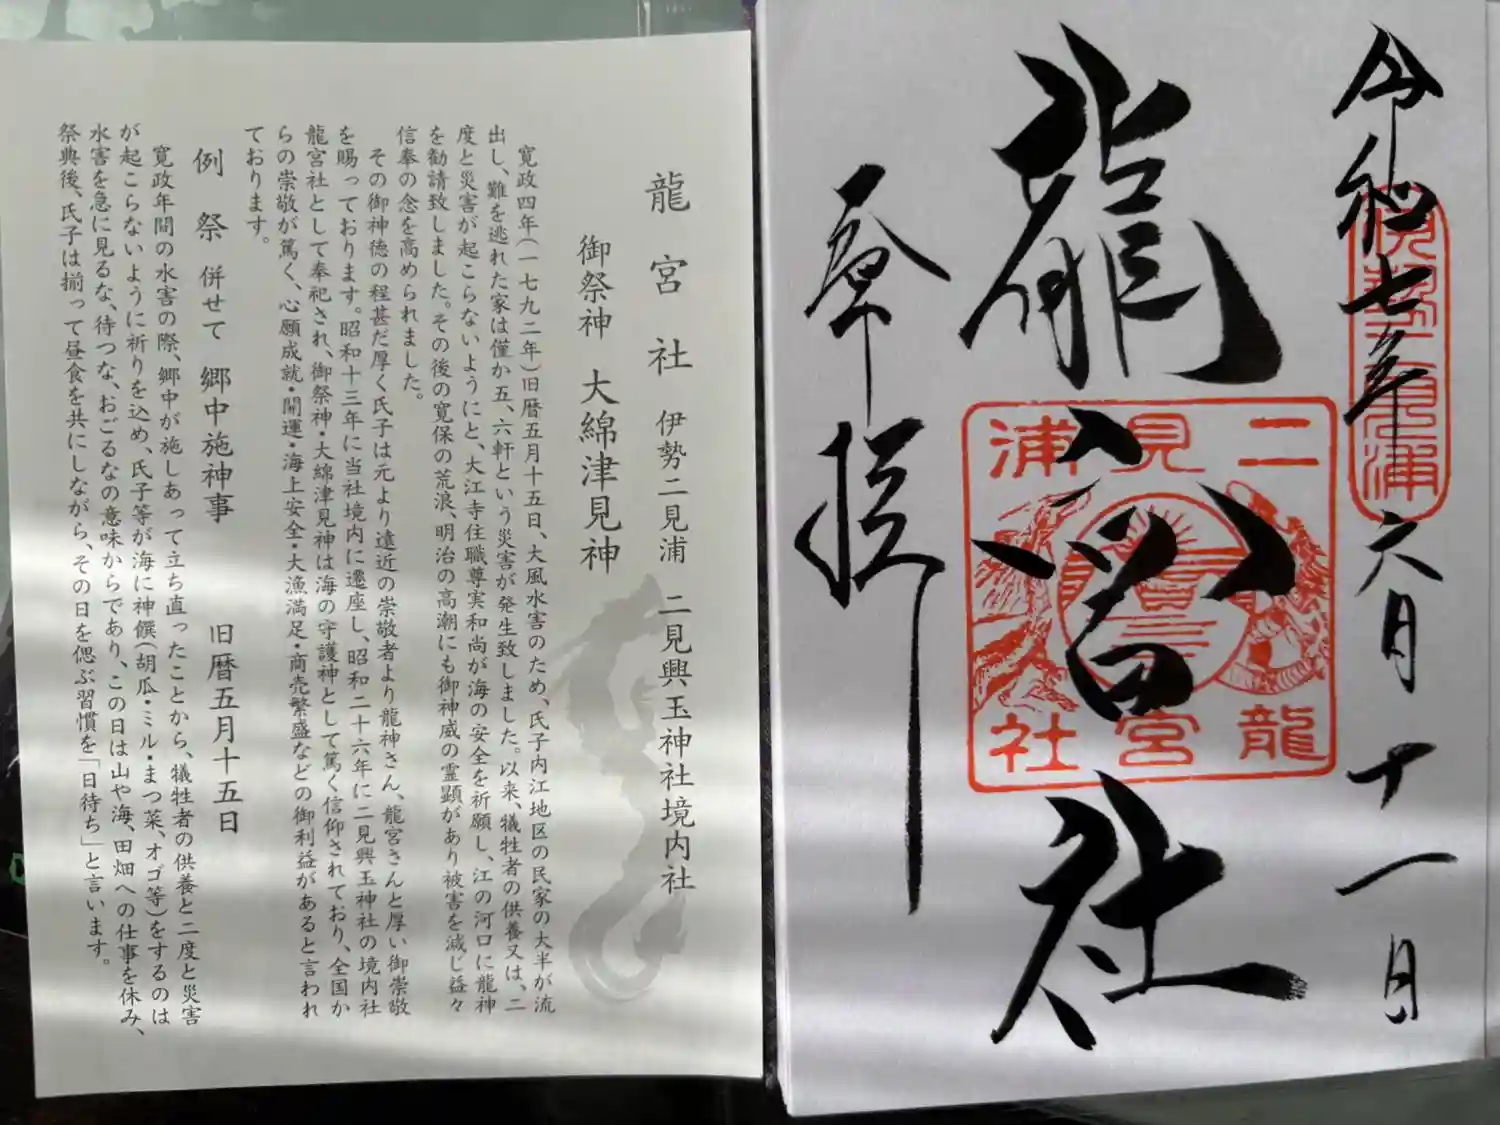 龍宮社 伊勢二見浦 二見興玉神社境内社
御祭神 大綿津見神
寛政四年(一七九二年)旧暦五月十五日、大風水害のため、氏子内江地区の民家の大半が流
出し、難を逃れた家は僅か五、六軒という災害が発生致しました。以来、犠牲者の供養又は、二
度と災害が起こらないようにと、大江寺住職尊実和尚が海の安全を祈願し、江の河口に龍神
を勧請致しました。その後の寛保の荒浪、明治の高潮にも御神威の霊顕があり被害を減じ益々
信奉の念を高められました。
その御神徳の程甚だ厚く氏子は元より遠近の崇敬者より龍神さん、龍宮さんと厚い御崇敬
を賜っております。昭和十三年に当社境内に遷座し、昭和二十六年に二見興玉神社の境内社
龍宮社として奉祀され、御祭神・大綿津見神は海の守護神として篤く信仰されており、全国か
らの崇敬が篤く、心願成就・開運・海上安全・大漁満足・商売繁盛などの御利益があると言われ
ております。
例祭 併せて 郷中施神事 旧暦五月十五日
寛政年間の水害の際、郷中が施しあって立ち直ったことから、犠牲者の供養と二度と災害
が起こらないように祈りを込め、氏子等が海に神饌(胡瓜・ミル・まつ菜、オゴ等)をするのは
水害を急に見るな、待つな、おごるなの意味からであり、この日は山や海、田畑への仕事を休み、
祭典後、氏子は揃って昼食を共にしながら、その日を偲ぶ習慣を「日待ち」と言います。
令和七年六月十一日
伊勢二見浦
龍宮社
二見浦
龍宮社
奉拝